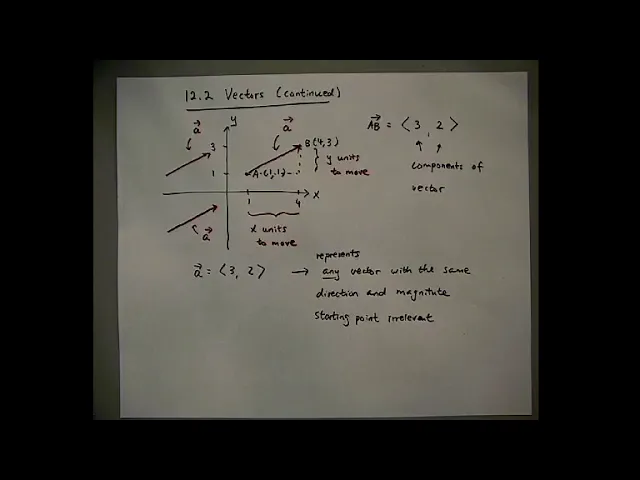 12.2 Vectors (continued)
y
a
a
3
B(4,3)
AB = ⟨3, 2⟩
y units
to move
1
A(1,1)
components of
vector
x
1
4
a
x units
to move
a = ⟨3, 2⟩ → represents
any vector with the same
direction and magnitute
starting point irrelevant